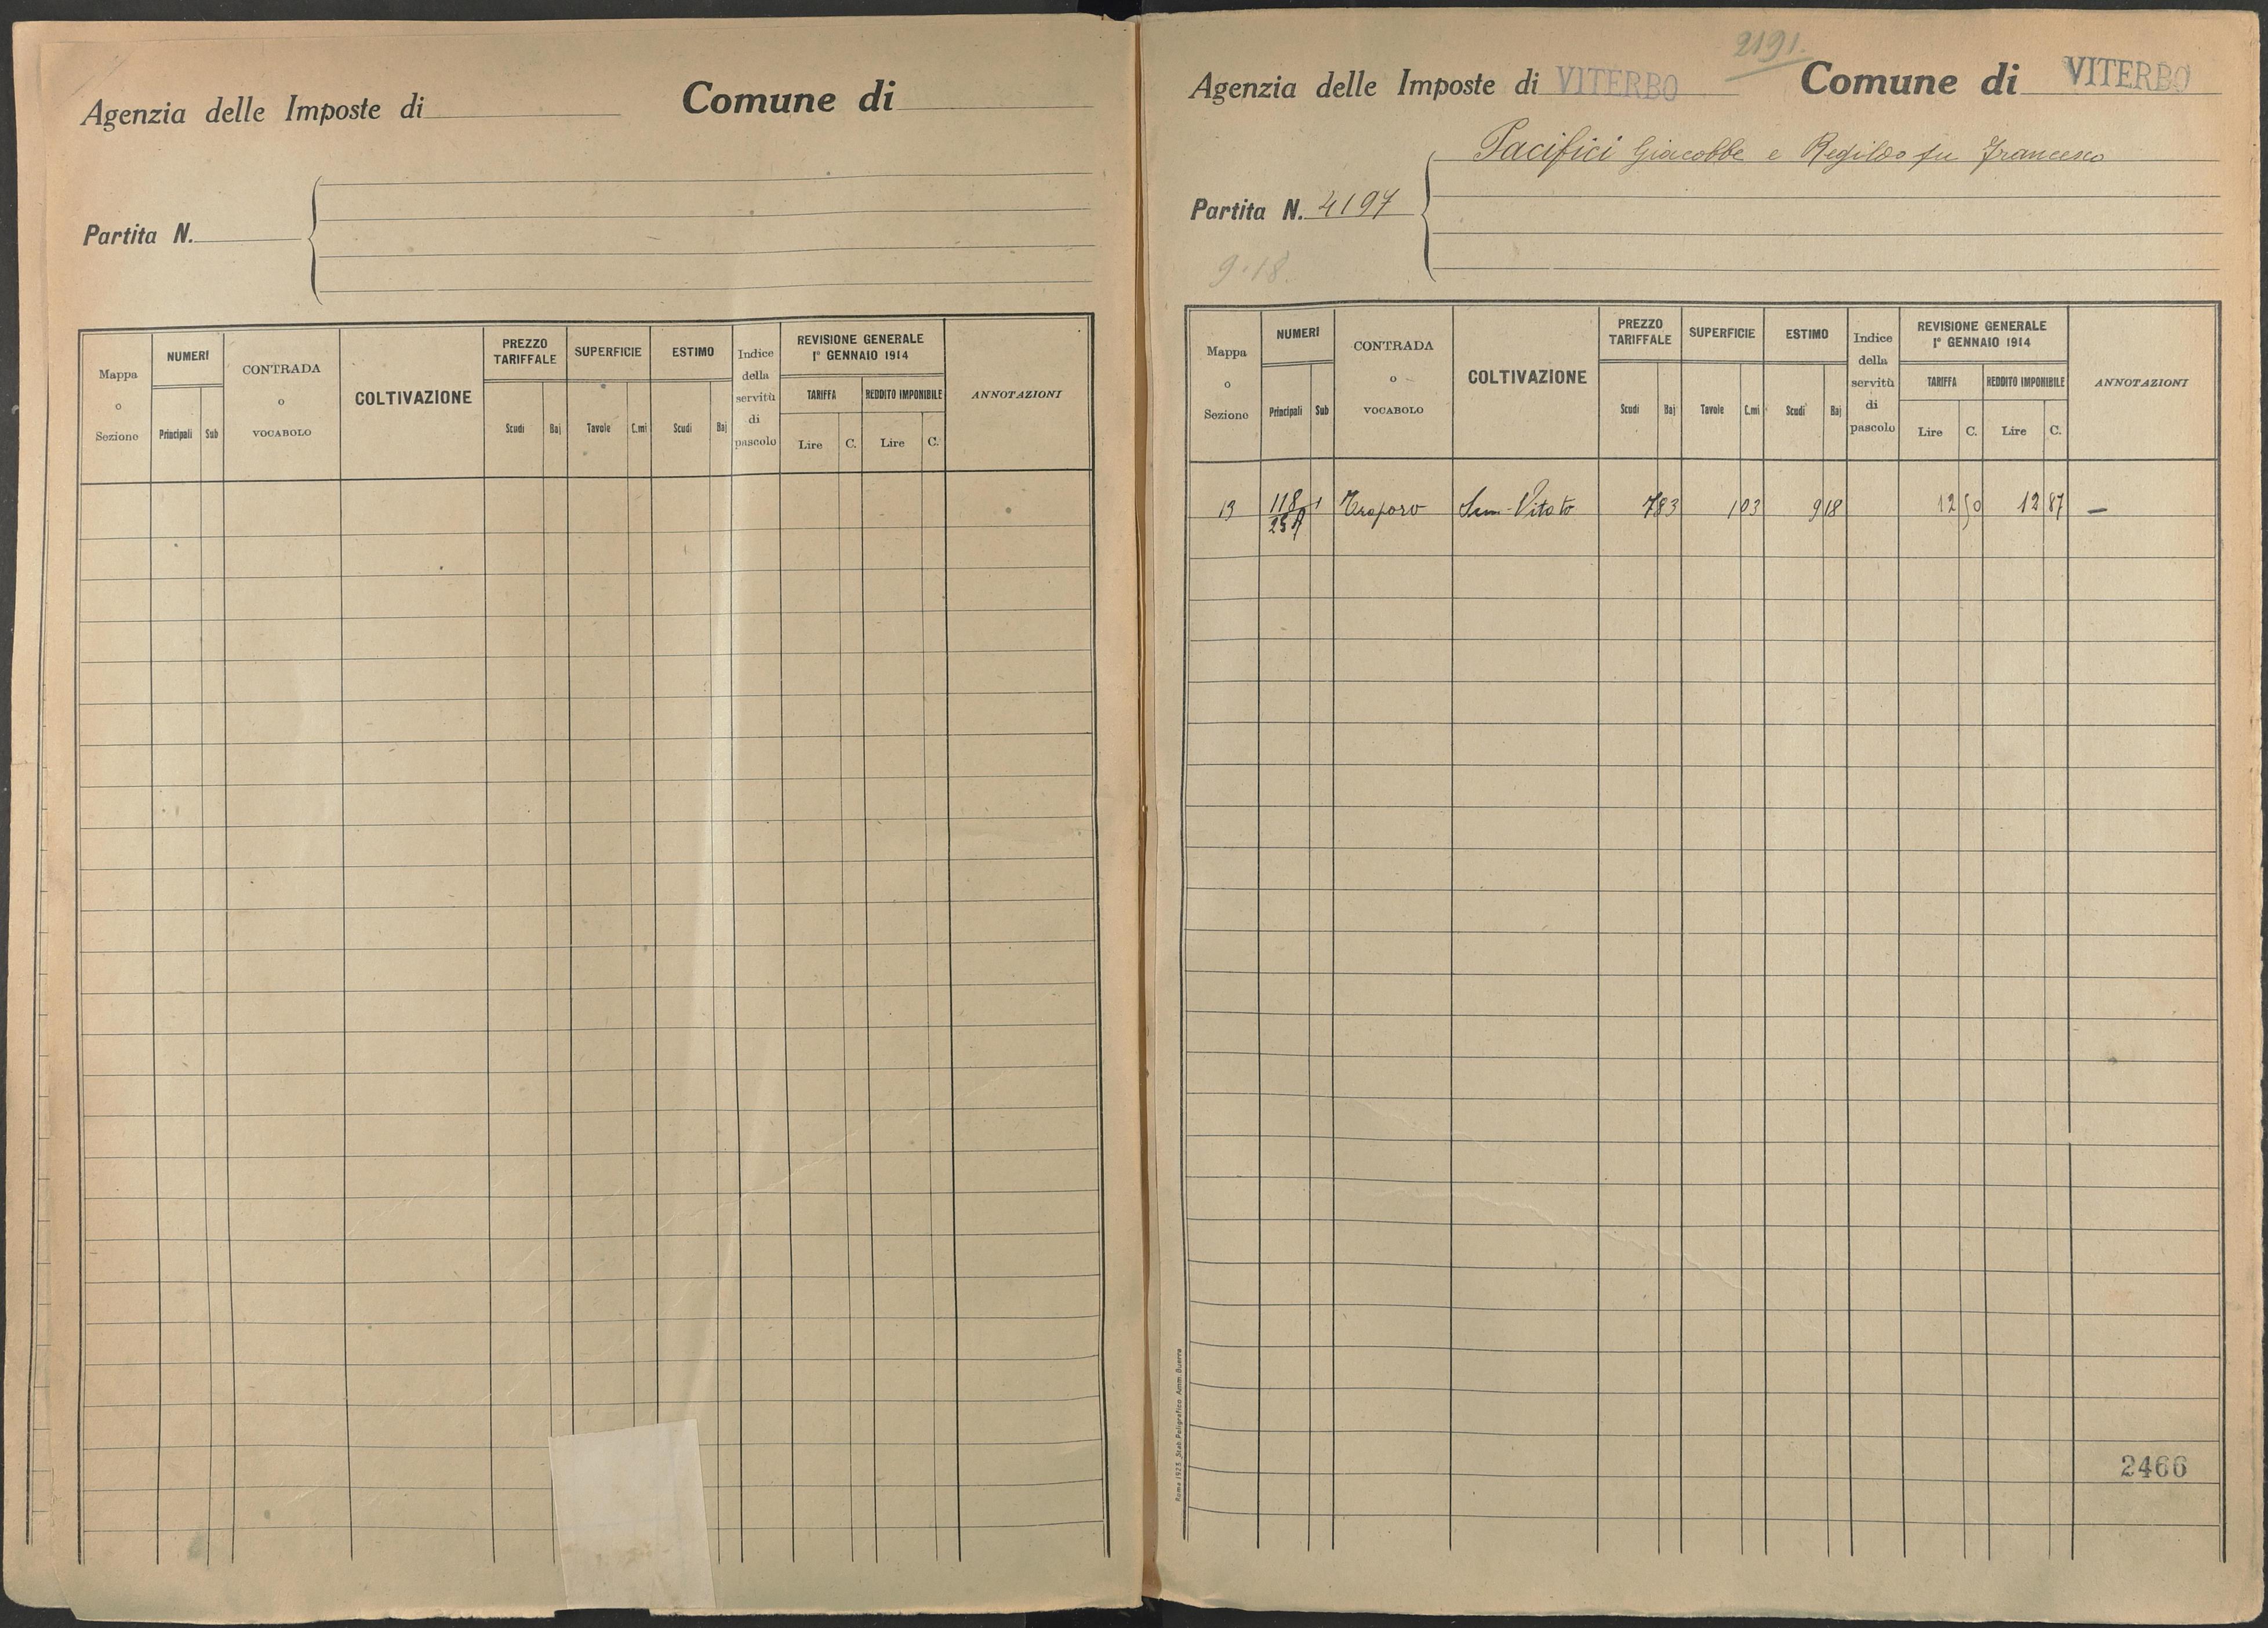 Agenzia delle Imposte di
Comune di
Partita N.
Mappa o Sezione
NUMERI
Principali Sub
CONTRADA o VOCABOLO
COLTIVAZIONE
PREZZO TARIFFALE
Scudi Baj
SUPERFICIE
Tavole C.mi
ESTIMO
Scudi Baj
Indice della servitù di pascolo
REVISIONE GENERALE
1° GENNAIO 1914
TARIFFA REDDITO IMPONIBILE
Lire C. Lire C.
ANNOTAZIONI
2191.
Agenzia delle Imposte di VITERBO
Comune di VITERBO
Pacifici Giacobbe e Regildo fu Francesco
Partita N. 4197
9.18.
Mappa o Sezione
NUMERI
Principali Sub
CONTRADA o VOCABOLO
COLTIVAZIONE
PREZZO TARIFFALE
Scudi Baj
SUPERFICIE
Tavole C.mi
ESTIMO
Scudi Baj
Indice della servitù di pascolo
REVISIONE GENERALE
1° GENNAIO 1914
TARIFFA REDDITO IMPONIBILE
Lire C. Lire C.
ANNOTAZIONI
13 118 1 Sem-Vitato 7 83 1 03 9 18 12 50 12 87 —
2466
Roma 1923 Stab. Poligrafico Amm. Guerra